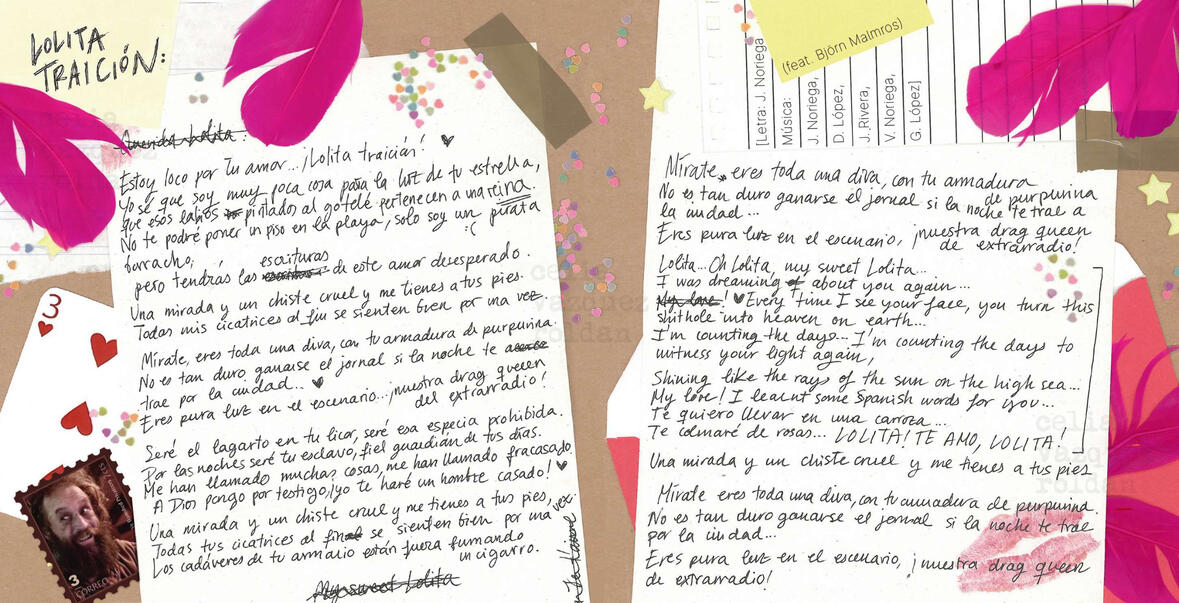 LOLITA
TRAICIÓN:
Querida Lolita:
Estoy loco por tu amor... ¡Lolita traición!
Yo sé que soy muy poca cosa para la luz de tu estrella,
que esos labios pintados al gotelé pertenecen a una reina.
No te podré poner un piso en la playa, solo soy un pirata
borracho; :(
escrituras
pero tendrás las de este amor desesperado.
Una mirada y un chiste cruel y me tienes a tus pies.
Todas mis cicatrices al fin se sienten bien por una vez
Mírate, eres toda una diva, con tu armadura de purpurina.
No es tan duro ganarse el jornal si la noche te
trae por la ciudad...
Eres pura luz en el escenario... ¡nuestra drag queen
del extrarradio!
Seré el lagarto en tu licor, seré esa especia prohibida.
Por las noches seré tu esclavo, fiel guardián de tus días.
Me han llamado muchas cosas, me han llamado fracasado.
A Dios pongo por testigo, ¡yo te haré un hombre casado!
Una mirada y un chiste cruel y me tienes a tus pies,
Todas tus cicatrices al final se sienten bien por una vez.
Los cadáveres de tu armario están fuera fumando
un cigarro.
My sweet Lolita
3
3
CORREO
(feat. Björn Malmros)
[Letra: J. Noriega
Música:
J. Noriega,
D. López,
J. Rivera,
V. Noriega,
G. López]
Mírate, eres toda una diva, con tu armadura
de purpurina
No es tan duro ganarse el jornal si la noche te trae a
la ciudad...
Eres pura luz en el escenario, ¡nuestra drag queen
de extrarradio!
Lolita... Oh Lolita, my sweet Lolita...
I was dreaming of about you again...
My love! Every time I see your face, you turn this
shithole into heaven on earth...
I'm counting the days... I'm counting the days to
witness your light again,
Shining like the rays of the sun on the high sea...
My love! I learnt some Spanish words for you...
Te quiero llevar en una carroza...
Te colmaré de rosas... LOLITA! TE AMO, LOLITA!
Una mirada y un chiste cruel y me tienes a tus pies
Mírate eres toda una diva, con tu armadura de purpurina.
No es tan duro ganarse el jornal si la noche te trae
por la ciudad...
Eres pura luz en el escenario, ¡nuestra drag queen
de extrarradio!
celia
vazquez
roldan
celia
vazquez
roldan